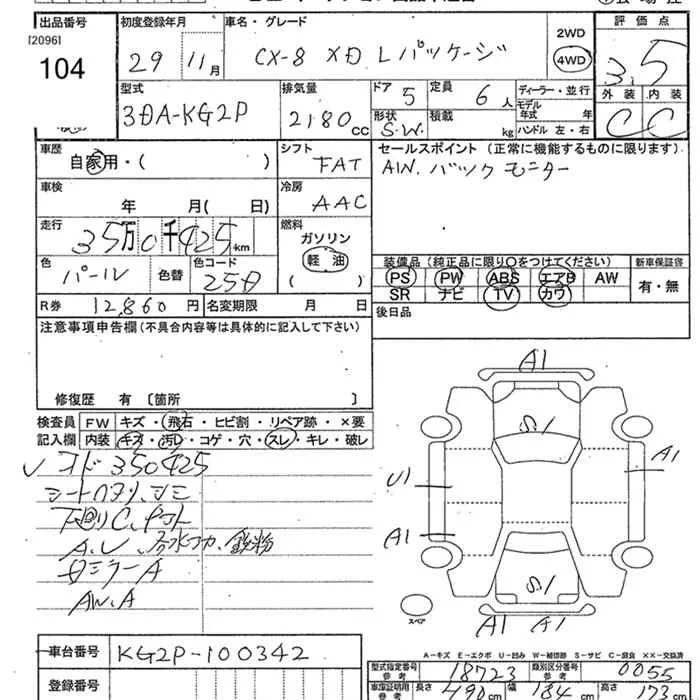 出品番号 初度登録年月 車名・グレード 評価点
[2096]
104 29 11月 CX-8 XD Lパッケージ 2WD 4WD 3.5
型式 排気量 ドア 5 定員 6人 ディーラー・並行 外装 内装
3DA-KG2P 2180cc 形状 S.W. 積載 kg モデル年式 年 ハンドル 左・右 C C
車歴 自家用・( ) シフト FAT セールスポイント (正常に機能するものに限ります)
車検 年 月( 日) 冷房 AAC AW. バックモニター
走行 35万0千425km 燃料 ガソリン 軽油 ( )
色 パール 色替 色コード 25D
装備品 (純正品に限り○をつけてください) 新車保証書
PS PW ABS エアB AW 有・無
SR ナビ TV カワ
R券 12,860円 名変期限 月 日 後日品
注意事項申告欄 (不具合内容等は具体的に記入して下さい)
修復歴 有 〔箇所 〕
検査員 FW キズ・飛石・ヒビ割・リペア跡・×要
記入欄 内装 キズ・汚レ・コゲ・穴・スレ・キレ・破レ
オド350425
シート
下回りC、
A.U、鉄粉
ミラーA
AW.A
A1
S1
A1
U1
A1
S1
スペア
A1 A1
A-キズ E-エクボ U-凹み W-補修跡 S-サビ C-腐食 XX-交換済
車台番号 KG2P-100342
登録番号
型式指定番号 参考 18723 類別区分番号 参考 0055
車庫証明用 参考 長さ 490cm 幅 184cm 高さ 173cm